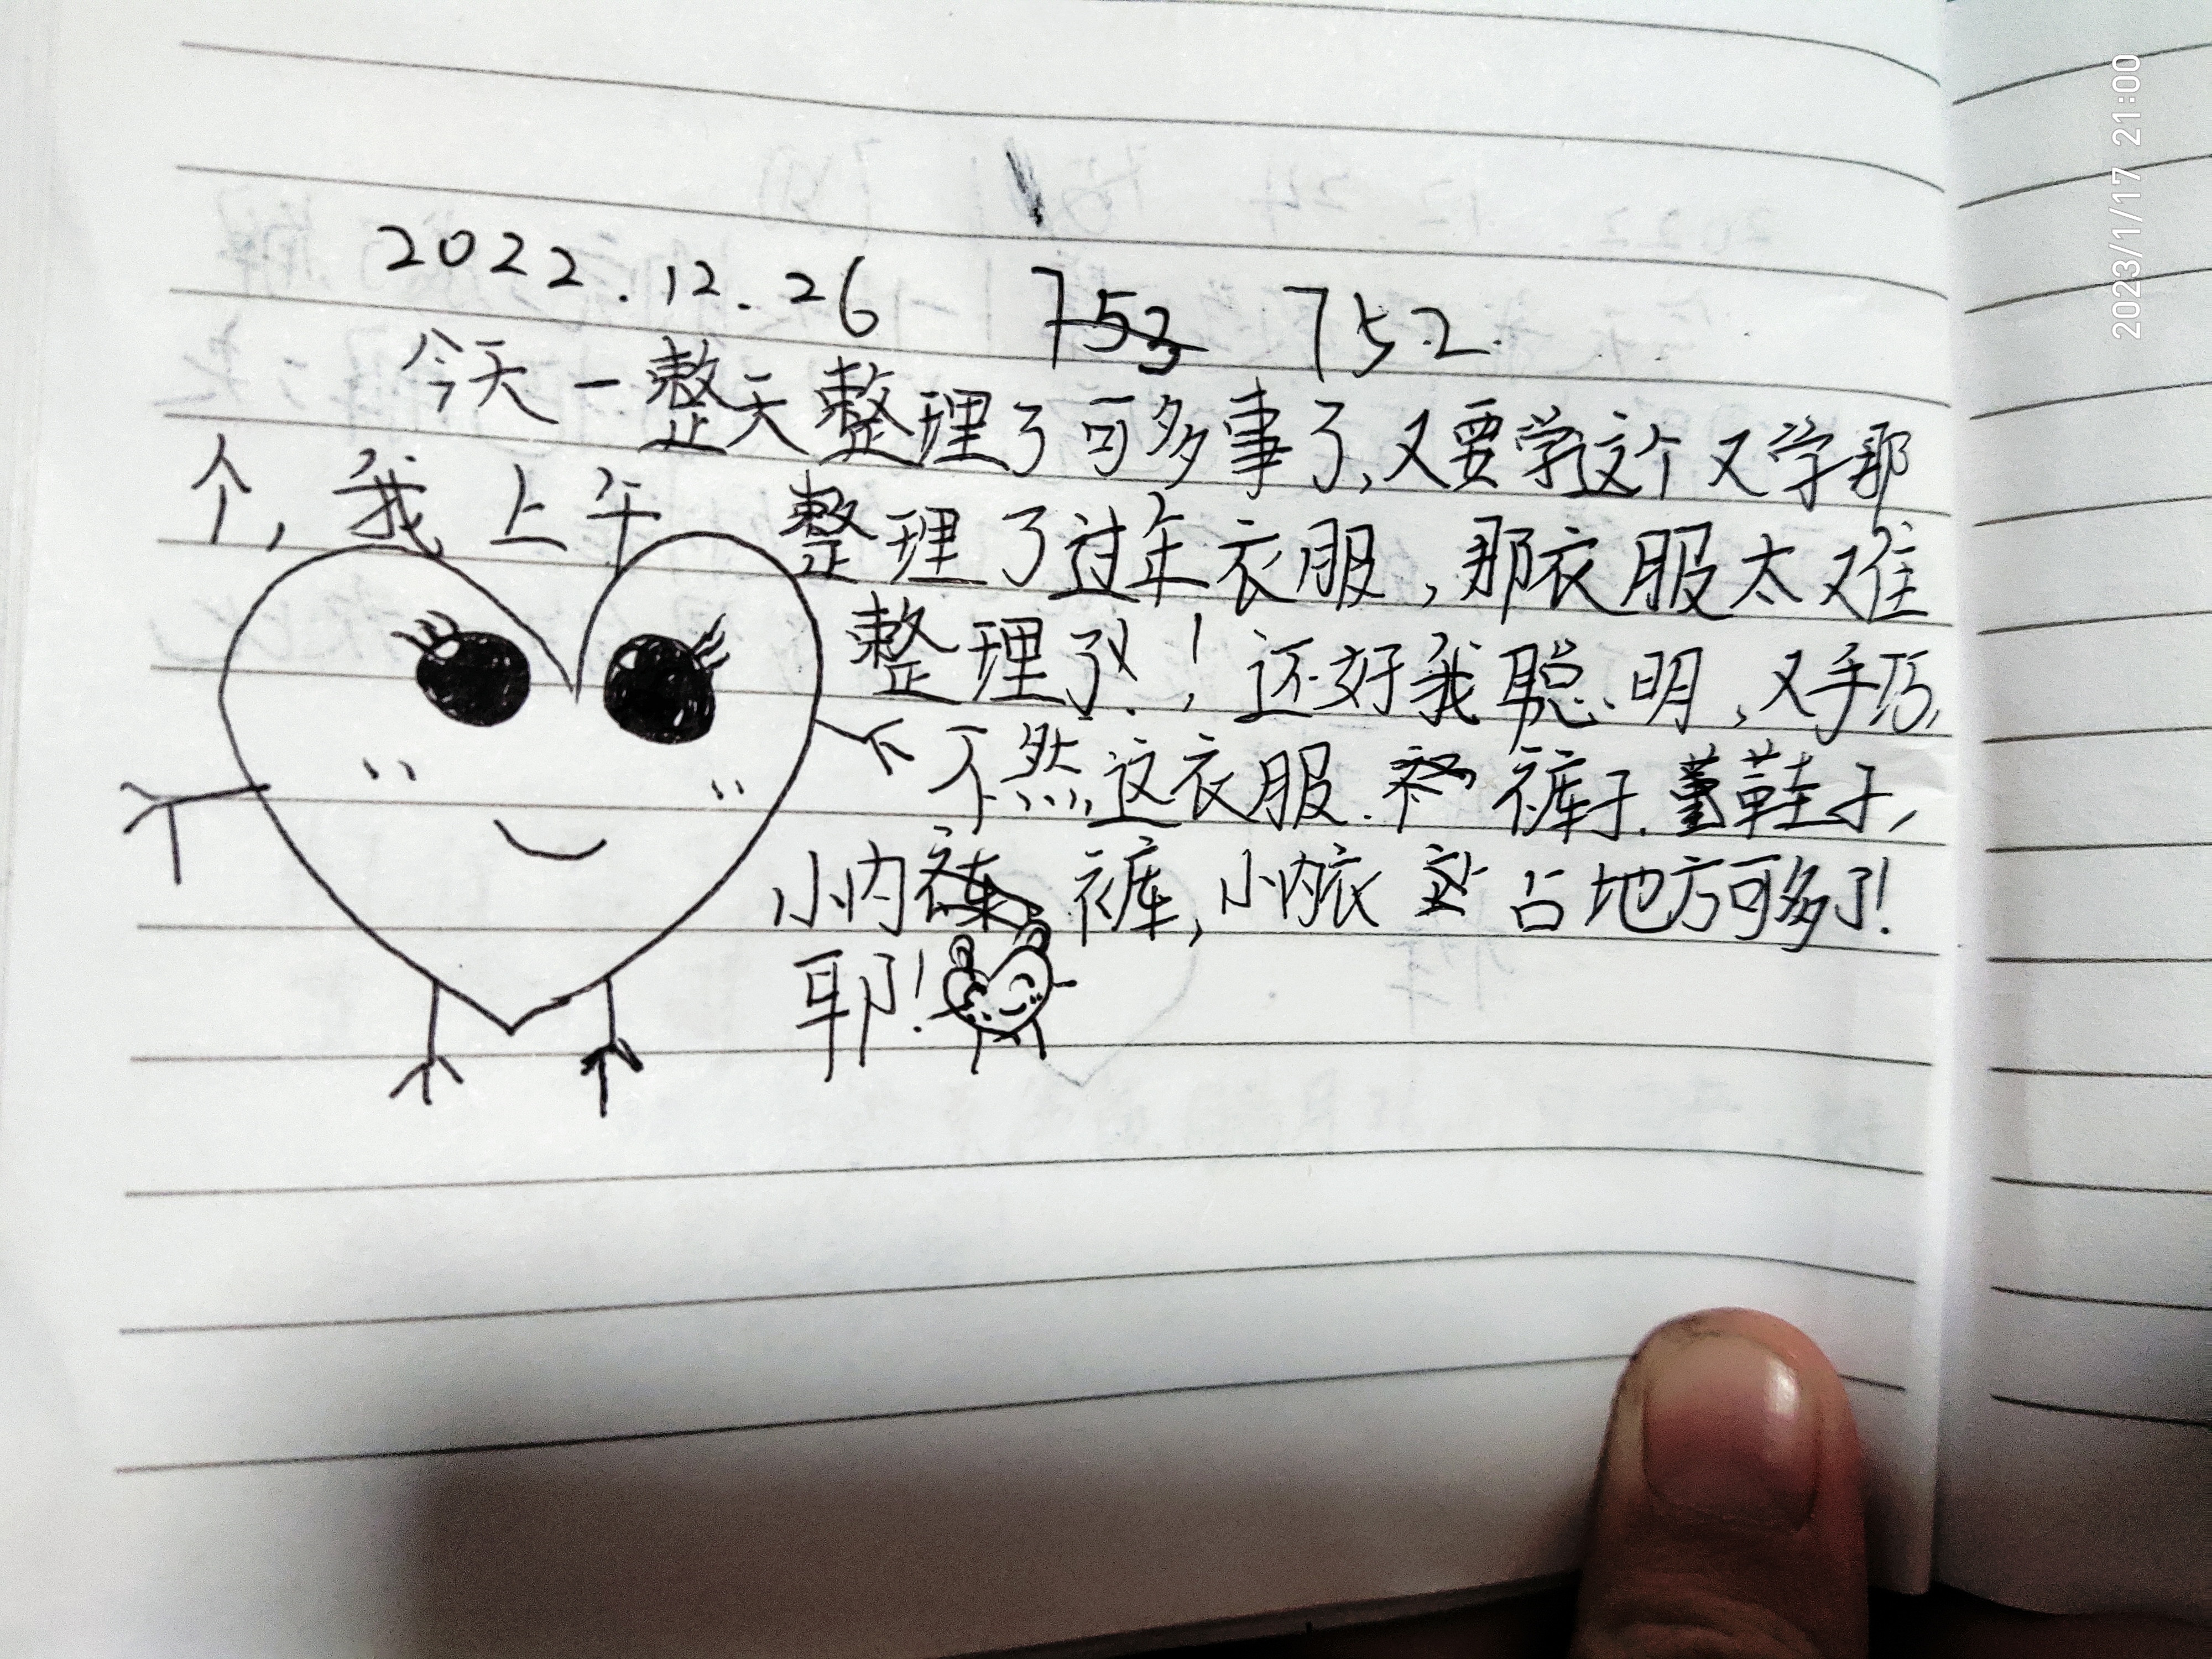 2022.12.26 753 752.
今天一整天整理了可多事了,又要学这个又学那
个,我上午整理了过年衣服,那衣服太难
整理了!!还好我聪明,又手巧,
不然这衣服.裤子.鞋子,
小内裤,小内衣占地方可多了!
耶!
2023/1/17 21:00